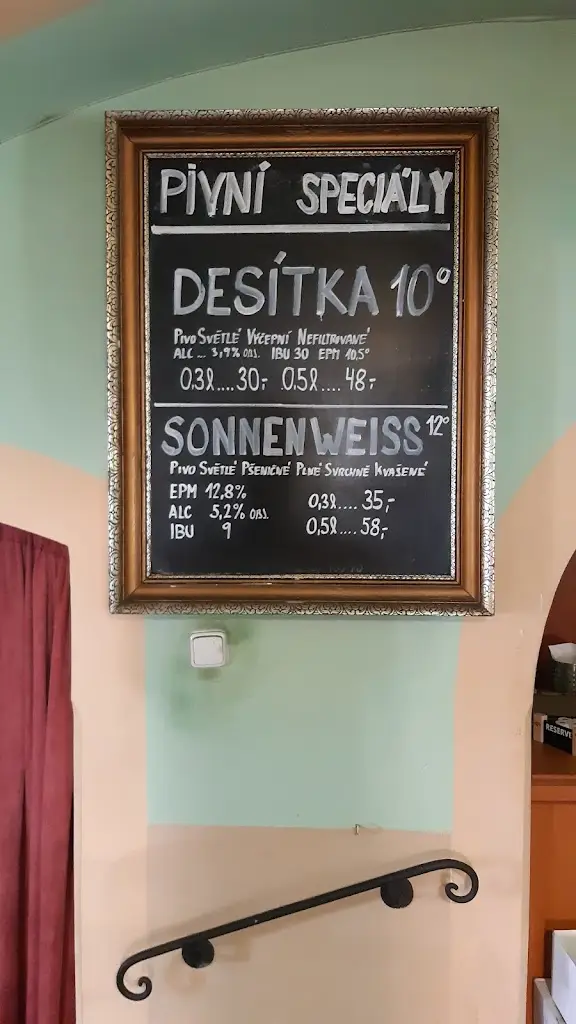 PIVNÍ SPECIÁLY
DESÍTKA 10°
PIVO SVĚTLÉ VÝČEPNÍ NEFILTROVANÉ
ALC ... 3,9% OBJ. IBU 30 EPM 10.5°
0.3l....30,- 0.5l....48,-
SONNENWEISS 12°
PIVO SVĚTLÉ PŠENIČNÉ PLNÉ SVRCHNĚ KVAŠENÉ
EPM 12,8%
ALC 5,2% OBJ.
IBU 9
0,3l....35,-
0,5l....58,-